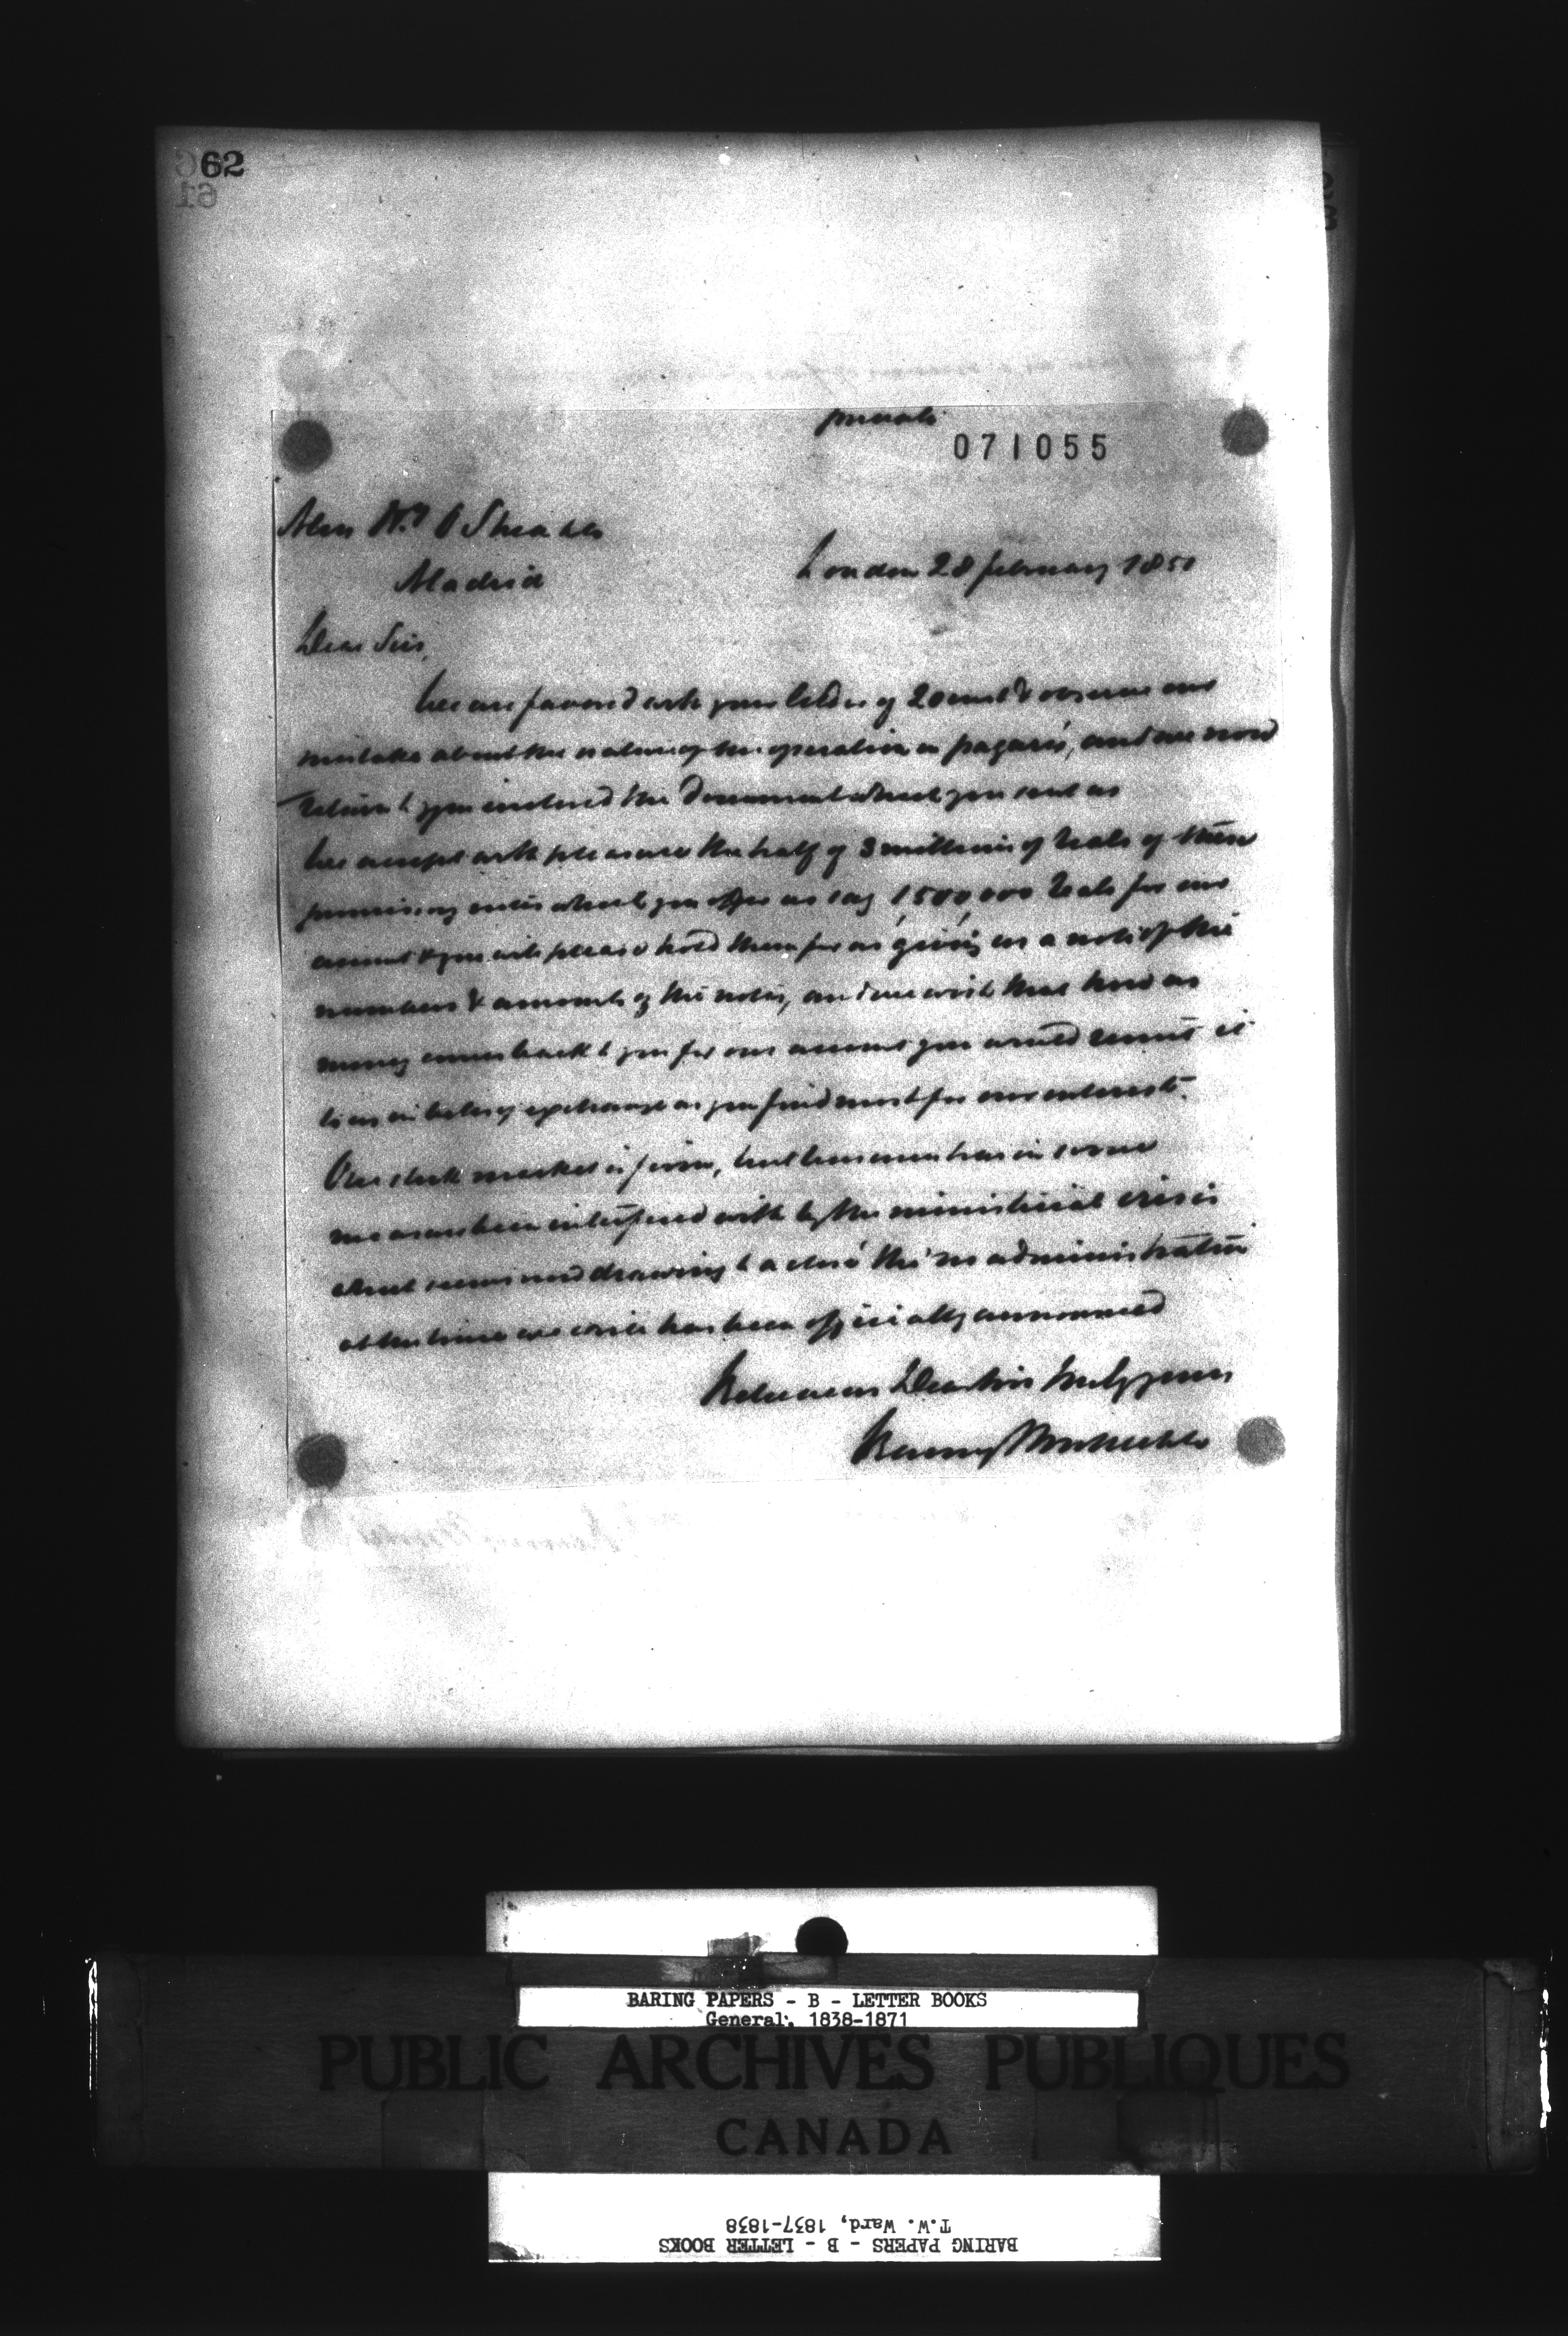 62
61
private
071055
Messrs Hy O Shea & Co
Madrid
London 28 february 1851
Dear Sirs,
We are favored with your letter of 20 inst & observe our
mistake about the nature of the operation in pagarés, and we now
return to you inclosed the Document which you sent us
We accept with pleasure the half of 3 millions of Reals of these
promissory notes which you offer us say 1500 000 Reals for our
account & you will please hold them for us giving us a note of the
numbers & amounts of the notes, and we wish that how as
money comes back to you for our account you would remit it
to us in bills of exchange as you find most for our interest.
Our stock market is firm, but business has in some
measure been interfered with by the ministerial crisis
which seems now drawing to a close tho' no administration
at the time we write has been officially announced
We remain Dear Sirs truly yours
Baring Brothers & Co
BARING PAPERS - B - LETTER BOOKS
General, 1838-1871
PUBLIC ARCHIVES PUBLIQUES
CANADA
T.W. Ward, 1837-1838
BARING PAPERS - B - LETTER BOOKS